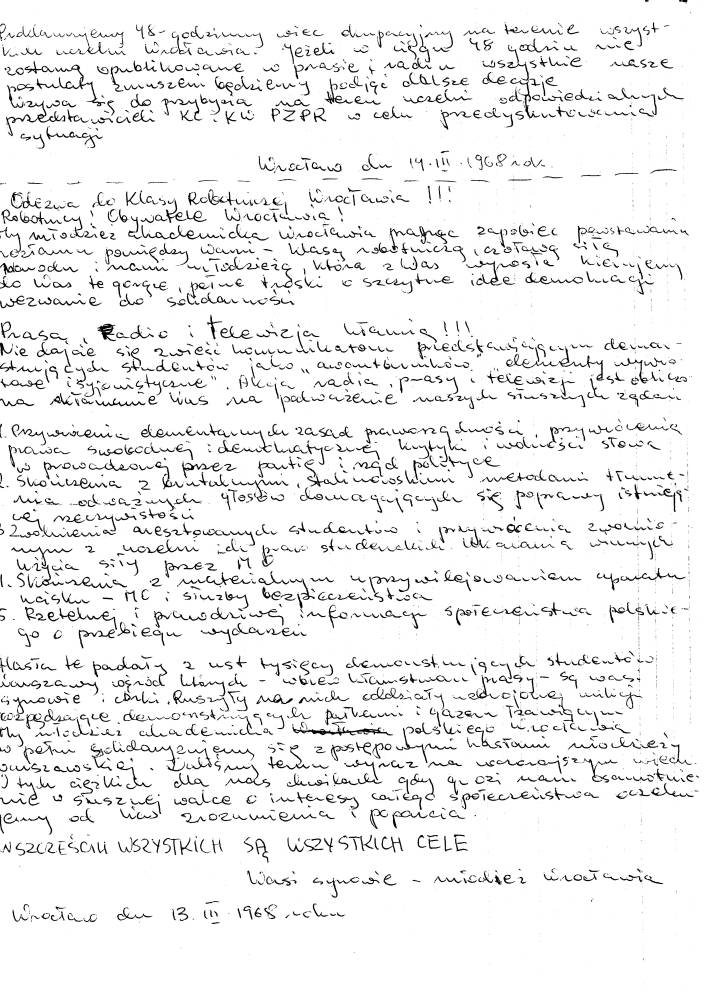 48-godzinny wiec okupacyjny na terenie wszyst-
kich uczelni Wrocławia. Jeżeli w ciągu 48 godzin nie
zostaną opublikowane w prasie i radiu wszystkie nasze
postulaty zmuszeni będziemy podjąć dalsze decyzje
Wzywa się do przybycia na teren uczelni odpowiedzialnych
przedstawicieli KC i KW PZPR w celu przedyskutowania
sytuacji
Wrocław dn 14.III.1968 rok.
Odezwa do Klasy Robotniczej Wrocławia !!!
Robotnicy! Obywatele Wrocławia!
My młodzież akademicka Wrocławia pragnąc zapobiec powstawaniu
rozłamu pomiędzy Wami – klasą robotniczą, czołową siłą
narodu i nami młodzieżą, która z Was wyrosła kierujemy
do Was te gorące, pełne troski o szczytne idee demokracji
wezwanie do solidarności
Prasa, Radio i Telewizja kłamią !!!
Nie dajcie się zwieść komunikatom przedstawiającym demon-
strujących studentów jako "awanturników", "elementy wywro-
towe i syjonistyczne". Akcja radia, prasy i telewizji jest obliczo-
na na podważenie naszych słusznych żądań
1. Przywrócenia elementarnych zasad praworządności, przywrócenia
prawa swobodnej i demokratycznej krytyki i wolności słowa
w prowadzonej przez partię i rząd polityce
2. Skończenia z brutalnymi, stalinowskimi metodami tłumie-
nia odważnych głosów domagających się poprawy istnieją-
cej rzeczywistości
3 Zwolnienia aresztowanych studentów i przywrócenia zwolnio-
nym z uczelni ich praw studenckich. Ukarania winnych
użycia siły przez MO
4. Skończenia z materialnym uprzywilejowaniem aparatu
wojska – MO i służby bezpieczeństwa
5. Rzetelnej i prawdziwej informacji społeczeństwa polskie-
go o przebiegu wydarzeń
Hasła te padały z ust tysięcy demonstrujących studentów
Warszawy wśród których – wbrew kłamstwom prasy – są wasi
synowie i córki. Ruszyły na nich oddziały uzbrojonej milicji
rozpędzające demonstrujących pałkami i gazem łzawiącym
My młodzież akademicka polskiego Wrocławia
w pełni solidaryzujemy się z postępowymi hasłami młodzieży
warszawskiej. Daliśmy temu wyraz na wczorajszym wiecu.
W tych ciężkich dla nas chwilach gdy grozi nam osamotnie-
nie w słusznej walce o interesy całego społeczeństwa oczeku-
jemy od Was zrozumienia i poparcia.
W SZCZĘŚCIU WSZYSTKICH SĄ WSZYSTKICH CELE
Wasi synowie – młodzież Wrocławia
Wrocław dn 13.III.1968 roku